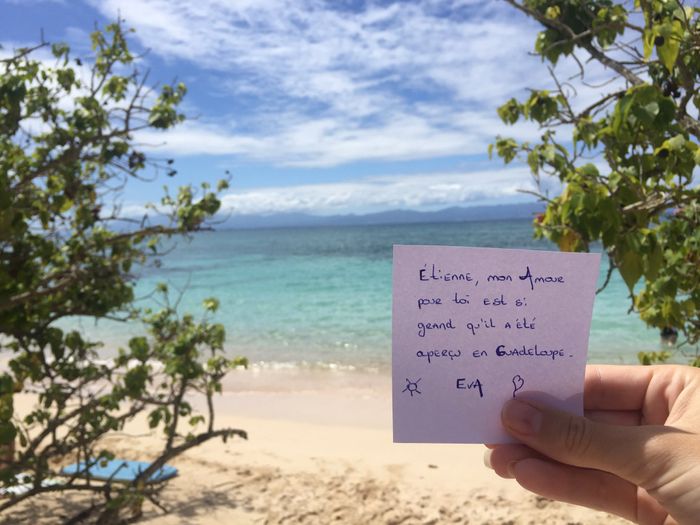 Étienne, mon Amour
pour toi est si
grand qu'il a été
aperçu en Guadeloupe.
EvA